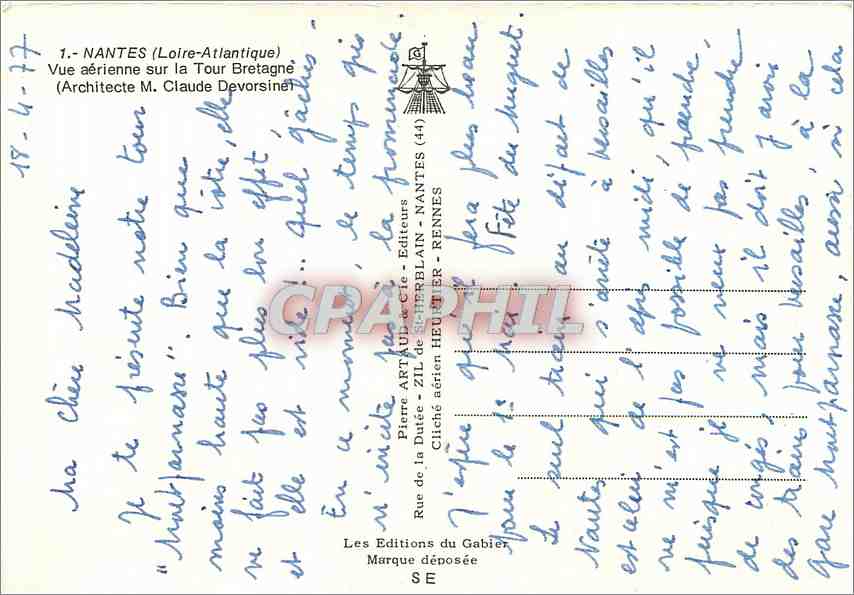 1.- NANTES (Loire-Atlantique)
Vue aérienne sur la Tour Bretagne
(Architecte M. Claude Devorsine)
18-4-77
Ma chère Madeleine
Je te présente notre tour
"Montparnasse". Bien que
moins haute que la vôtre, elle
ne fait pas plus bon effet,
et elle est vide!.. quel gâchis.
En ce moment, le temps gris
n'incite pas à la promenade.
J'espère qu'il fera plus beau
pour le 1er mai. Fête du muguet.
Le seul train au départ de
Nantes qui s'arrête à Versailles
est celui de l'après midi, qu'il
ne m'est pas possible de prendre,
puisque je ne veux pas prendre
de congés, mais il doit y avoir
des trains pour Versailles à la
gare Montparnasse, aussi si cela
Pierre ARTAUD & Cie - Editeurs
Rue de la Dutée - ZIL de St-HERBLAIN - NANTES (44)
Cliché aérien HEURTIER - RENNES
CPARPHIL
Les Editions du Gabier
Marque déposée
S E